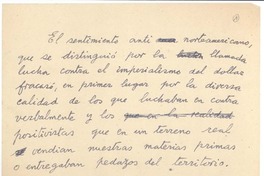 El sentimiento anti norteamericano,
que se distinguió por la llamada
lucha contra el imperialismo del dollar
fracasó, en primer lugar por la diversa
calidad de los que luchaban en contra
verbalmente y los que en la realidad
positivistas que en un terreno real
vendian nuestras materias primas
o entregaban pedazos del territorio.